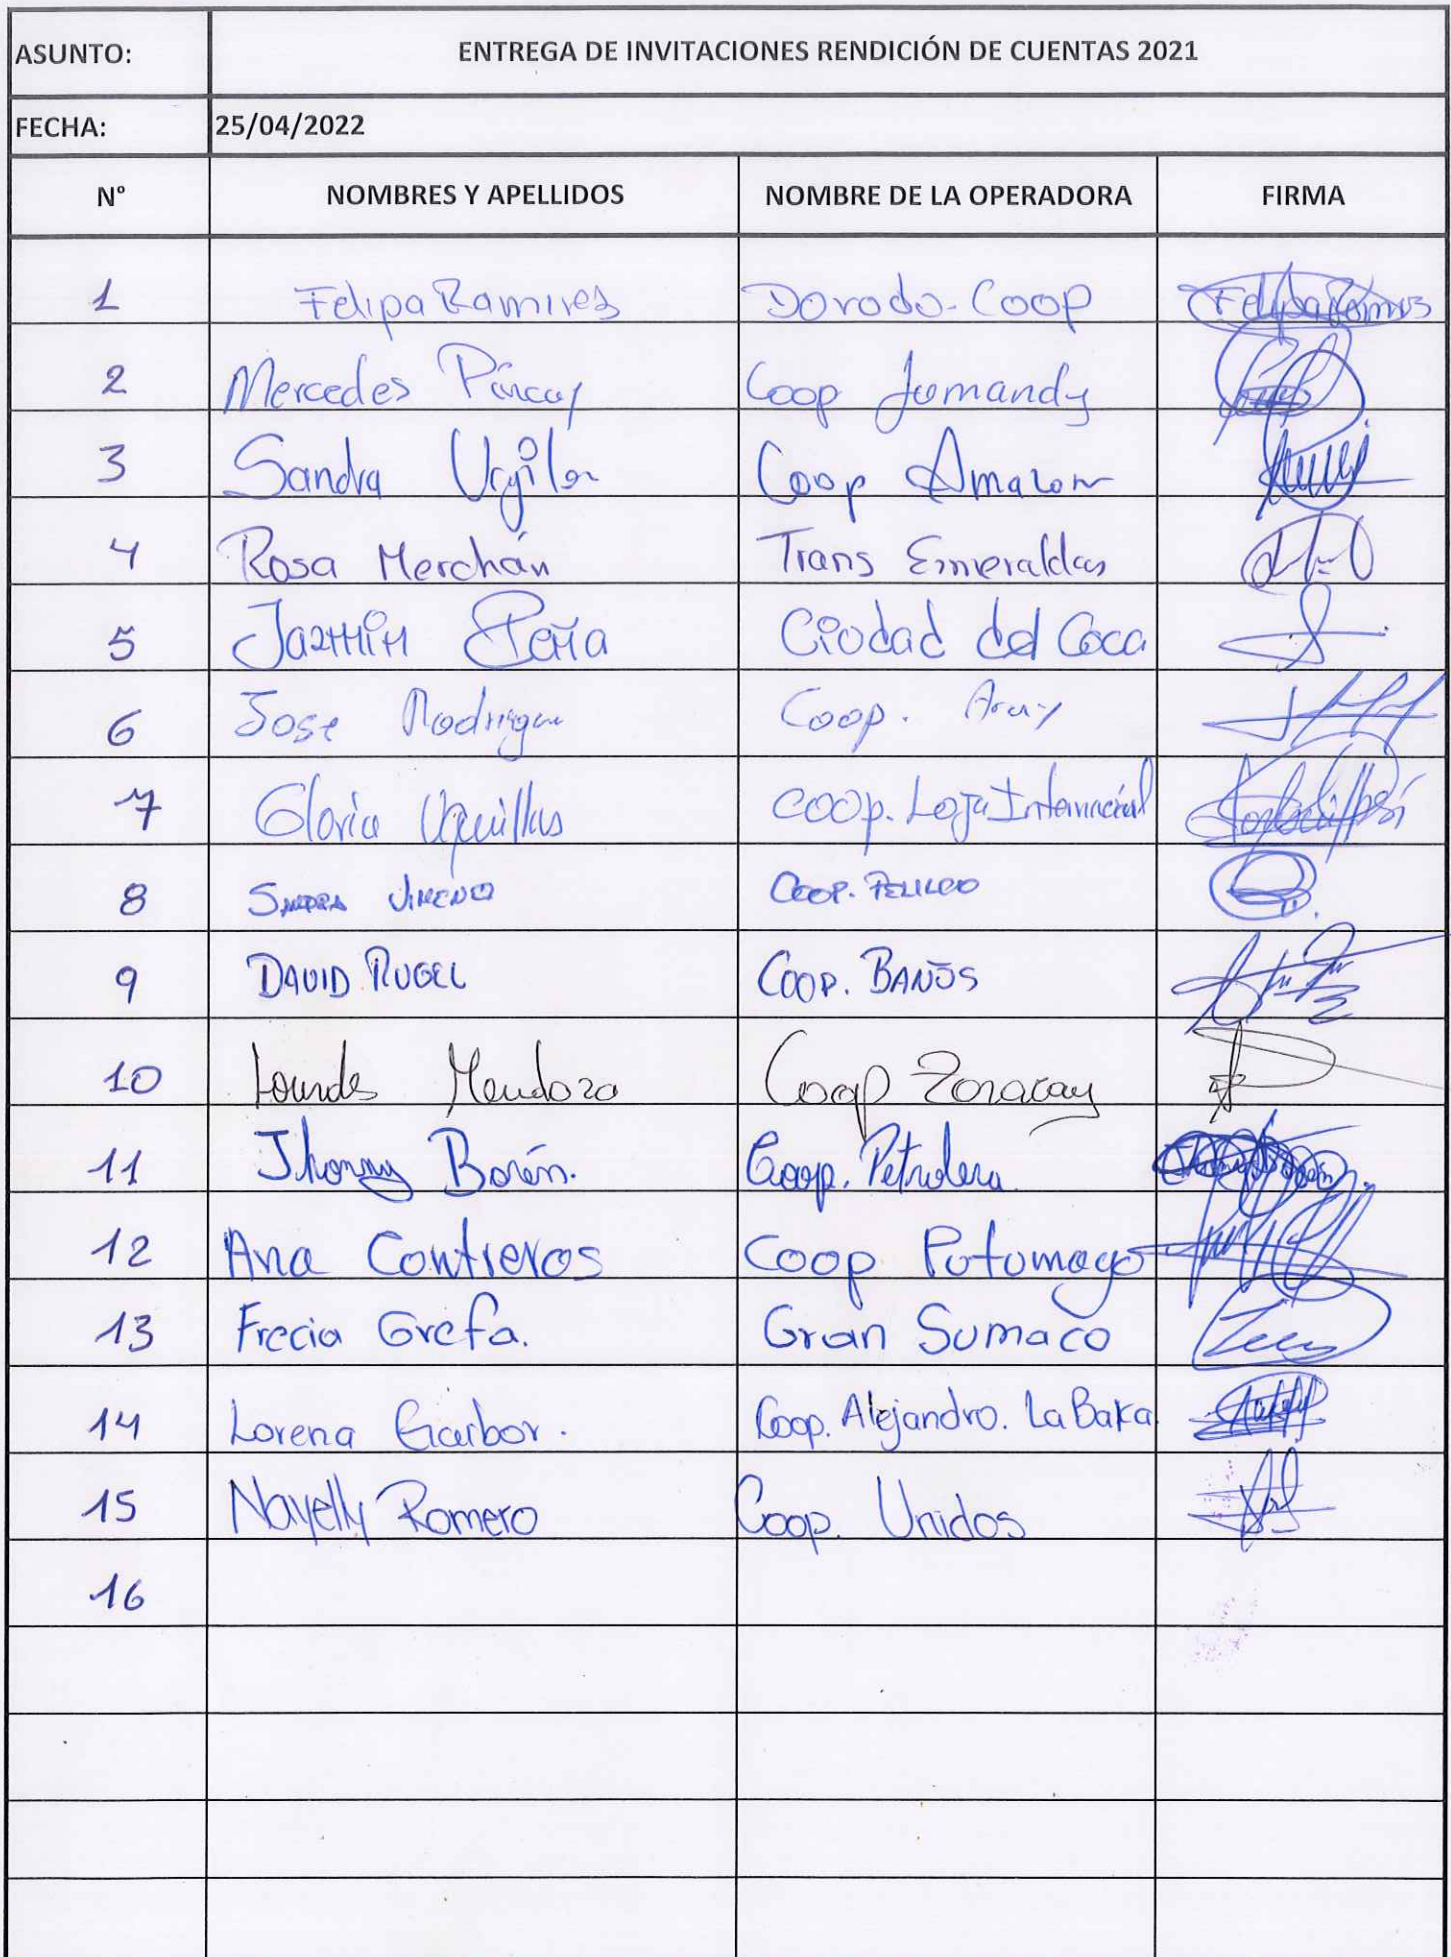 ASUNTO: ENTREGA DE INVITACIONES RENDICIÓN DE CUENTAS 2021
FECHA: 25/04/2022
N° NOMBRES Y APELLIDOS NOMBRE DE LA OPERADORA FIRMA
1 Felipa Ramires Dorado-Coop Felipa Ramires
2 Mercedes Pincay Coop Jumandy
3 Sandra Coop Amazon
4 Rosa Merchán Trans Esmeraldas
5 Jazmin Peña Ciudad del Coca
6 Jose Rodriguez Coop. Aray
7 Gloria Uquillas Coop. Loja Internacional
8 Coop.
9 DAVID RUGEL COOP. BAÑOS
10 Lourdes Mendoza Coop Zaracay
11 Jhonny Borén. Coop. Petrolera
12 Ana Contreros Coop Putumayo
13 Frecia Grefa. Gran Sumaco
14 Lorena Garbor. Coop. Alejandro. La Baka
15 Nayelly Romero Coop. Unidos
16